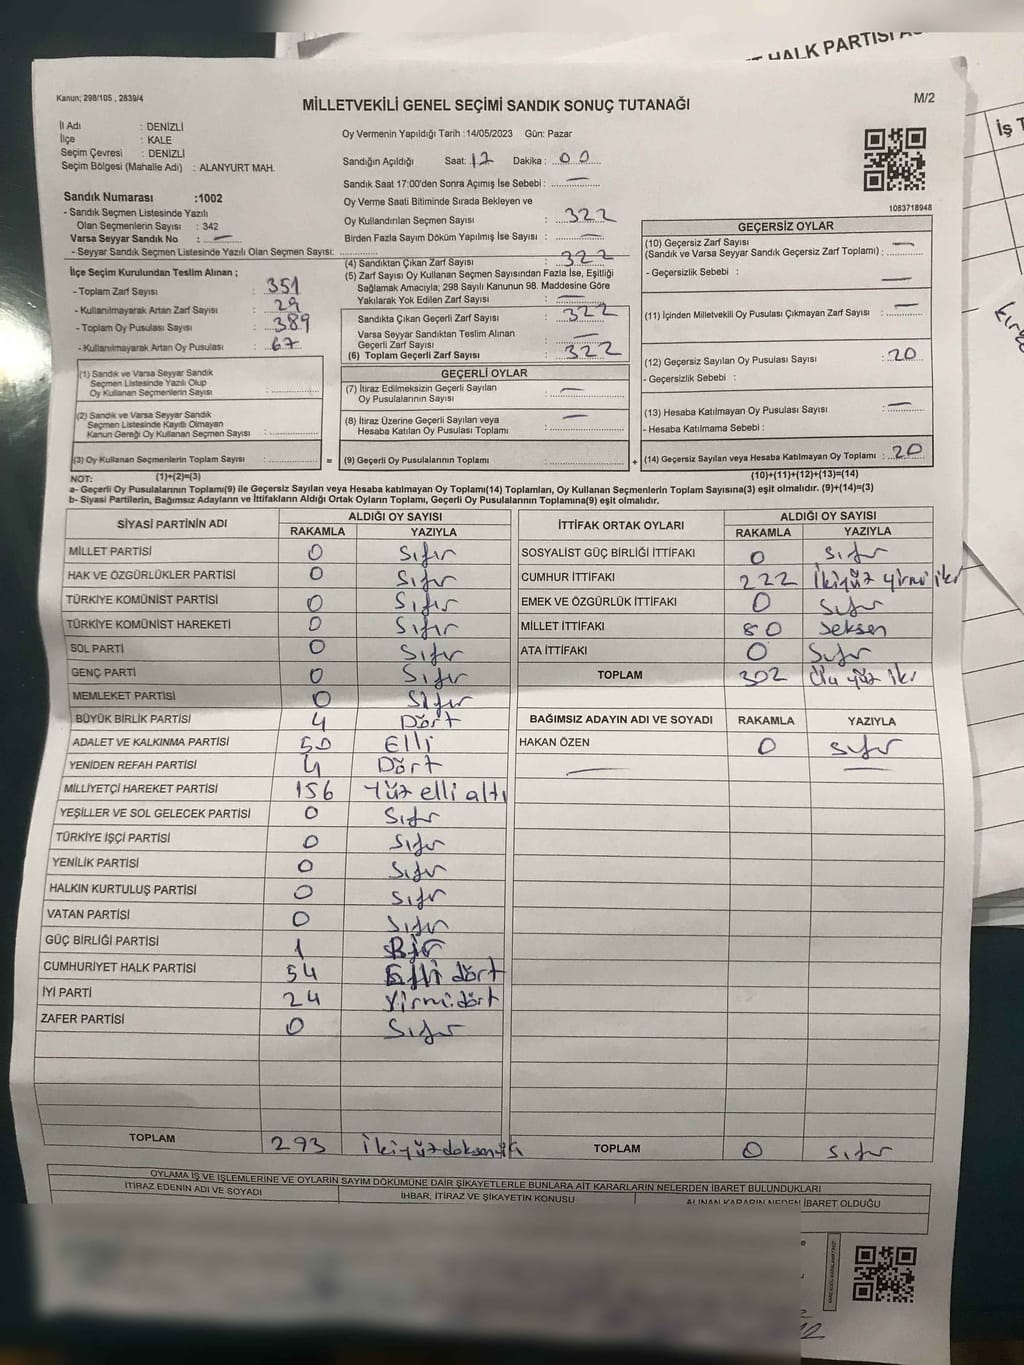 T HALK PARTİSİ
İş T
Kanun; 298/105 , 2839/4
MİLLETVEKİLİ GENEL SEÇİMİ SANDIK SONUÇ TUTANAĞI
M/2
İl Adı : DENİZLİ
İlçe : KALE
Seçim Çevresi : DENİZLİ
Seçim Bölgesi (Mahalle Adı) : ALANYURT MAH.
Oy Vermenin Yapıldığı Tarih :14/05/2023 Gün: Pazar
Sandığın Açıldığı Saat: 12 Dakika : 00
Sandık Saat 17:00'den Sonra Açımış İse Sebebi :
Oy Verme Saati Bitiminde Sırada Bekleyen ve
Oy Kullandırılan Seçmen Sayısı : 322
Birden Fazla Sayım Döküm Yapılmış İse Sayısı :
1083718948
Sandık Numarası :1002
- Sandık Seçmen Listesinde Yazılı
Olan Seçmenlerin Sayısı : 342
Varsa Seyyar Sandık No :
- Seyyar Sandık Seçmen Listesinde Yazılı Olan Seçmen Sayısı:
İlçe Seçim Kurulundan Teslim Alınan ;
- Toplam Zarf Sayısı : 351
- Kullanılmayarak Artan Zarf Sayısı : 29
- Toplam Oy Pusulası Sayısı : 389
- Kullanılmayarak Artan Oy Pusulası : 67
(1) Sandık ve Varsa Seyyar Sandık
Seçmen Listesinde Yazılı Olup
Oy Kullanan Seçmenlerin Sayısı :
(2) Sandık ve Varsa Seyyar Sandık
Seçmen Listesinde Kayıtlı Olmayan
Kanun Gereği Oy Kullanan Seçmen Sayısı :
(3) Oy Kullanan Seçmenlerin Toplam Sayısı :
(4) Sandıktan Çıkan Zarf Sayısı : 322
(5) Zarf Sayısı Oy Kullanan Seçmen Sayısından Fazla İse, Eşitliği
Sağlamak Amacıyla; 298 Sayılı Kanunun 98. Maddesine Göre
Yakılarak Yok Edilen Zarf Sayısı :
Sandıkta Çıkan Geçerli Zarf Sayısı : 322
Varsa Seyyar Sandıktan Teslim Alınan
Geçerli Zarf Sayısı :
(6) Toplam Geçerli Zarf Sayısı : 322
GEÇERLİ OYLAR
(7) İtiraz Edilmeksizin Geçerli Sayılan
Oy Pusulalarının Sayısı :
(8) İtiraz Üzerine Geçerli Sayılan veya
Hesaba Katılan Oy Pusulası Toplamı :
= (9) Geçerli Oy Pusulalarının Toplamı :
GEÇERSİZ OYLAR
(10) Geçersiz Zarf Sayısı
(Sandık ve Varsa Seyyar Sandık Geçersiz Zarf Toplamı) :
- Geçersizlik Sebebi :
(11) İçinden Milletvekili Oy Pusulası Çıkmayan Zarf Sayısı :
(12) Geçersiz Sayılan Oy Pusulası Sayısı : 20
- Geçersizlik Sebebi :
(13) Hesaba Katılmayan Oy Pusulası Sayısı :
- Hesaba Katılmama Sebebi :
+ (14) Geçersiz Sayılan veya Hesaba Katılmayan Oy Toplamı : 20
NOT: (1)+(2)=(3) (10)+(11)+(12)+(13)=(14)
a- Geçerli Oy Pusulalarının Toplamı(9) ile Geçersiz Sayılan veya Hesaba katılmayan Oy Toplamı(14) Toplamları, Oy Kullanan Seçmenlerin Toplam Sayısına(3) eşit olmalıdır. (9)+(14)=(3)
b- Siyasi Partilerin, Bağımsız Adayların ve İttifakların Aldığı Ortak Oyların Toplamı, Geçerli Oy Pusulalarının Toplamına(9) eşit olmalıdır.
SİYASİ PARTİNİN ADI ALDIĞI OY SAYISI
RAKAMLA YAZIYLA
MİLLET PARTİSİ 0 Sıfır
HAK VE ÖZGÜRLÜKLER PARTİSİ 0 Sıfır
TÜRKİYE KOMÜNİST PARTİSİ 0 Sıfır
TÜRKİYE KOMÜNİST HAREKETİ 0 Sıfır
SOL PARTİ 0 Sıfır
GENÇ PARTİ 0 Sıfır
MEMLEKET PARTİSİ 0 Sıfır
BÜYÜK BİRLİK PARTİSİ 4 Dört
ADALET VE KALKINMA PARTİSİ 50 Elli
YENİDEN REFAH PARTİSİ 4 Dört
MİLLİYETÇİ HAREKET PARTİSİ 156 Yüz elli altı
YEŞİLLER VE SOL GELECEK PARTİSİ 0 Sıfır
TÜRKİYE İŞÇİ PARTİSİ 0 Sıfır
YENİLİK PARTİSİ 0 Sıfır
HALKIN KURTULUŞ PARTİSİ 0 Sıfır
VATAN PARTİSİ 0 Sıfır
GÜÇ BİRLİĞİ PARTİSİ 1 Bir
CUMHURİYET HALK PARTİSİ 54 Elli dört
İYİ PARTİ 24 Yirmi dört
ZAFER PARTİSİ 0 Sıfır
TOPLAM 293
İTTİFAK ORTAK OYLARI ALDIĞI OY SAYISI
RAKAMLA YAZIYLA
SOSYALİST GÜÇ BİRLİĞİ İTTİFAKI 0 Sıfır
CUMHUR İTTİFAKI 222 İkiyüz yirmi iki
EMEK VE ÖZGÜRLÜK İTTİFAKI 0 Sıfır
MİLLET İTTİFAKI 80 Seksen
ATA İTTİFAKI 0 Sıfır
TOPLAM 302 yüz iki
BAĞIMSIZ ADAYIN ADI VE SOYADI RAKAMLA YAZIYLA
HAKAN ÖZEN 0 Sıfır
TOPLAM 0 Sıfır
OYLAMA İŞ VE İŞLEMLERİNE VE OYLARIN SAYIM DÖKÜMÜNE DAİR ŞİKAYETLERLE BUNLARA AİT KARARLARIN NELERDEN İBARET BULUNDUKLARI
İTİRAZ EDENİN ADI VE SOYADI İHBAR, İTİRAZ VE ŞİKAYETİN KONUSU ALINAN KARARIN NEDEN İBARET OLDUĞU